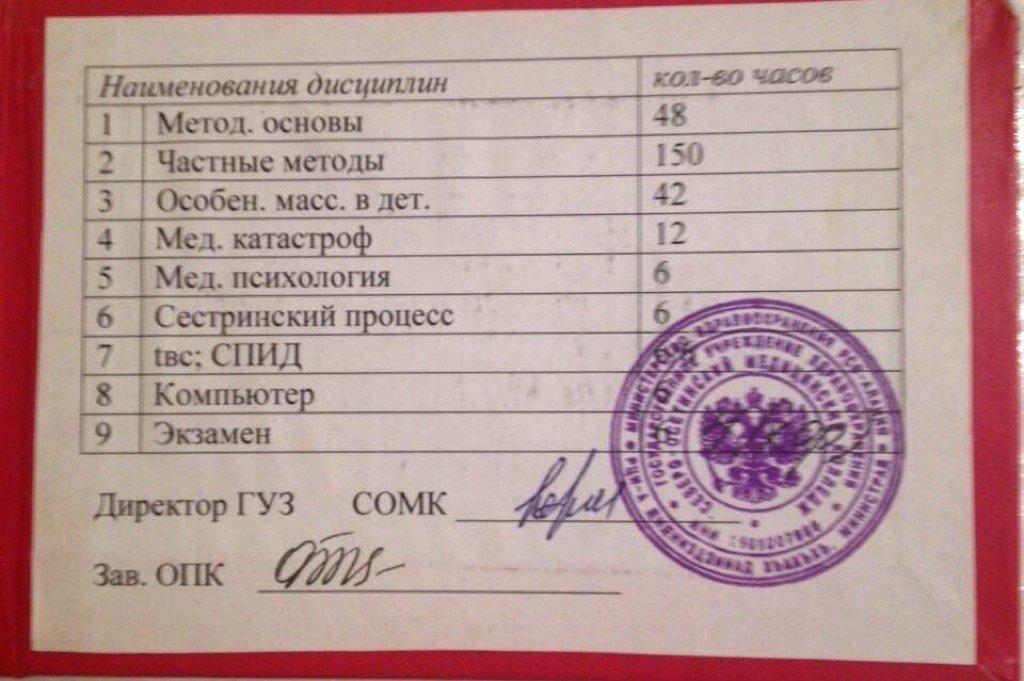 Наименования дисциплин кол-во часов
1 Метод. основы 48
2 Частные методы 150
3 Особен. масс. в дет. 42
4 Мед. катастроф 12
5 Мед. психология 6
6 Сестринский процесс 6
7 tвс; СПИД
8 Компьютер
9 Экзамен
Директор ГУЗ СОМК
Зав. ОПК
МИНИСТЕРСТВО ЗДРАВООХРАНЕНИЯ РСО-АЛАНИЯ
ГОСУДАРСТВЕННОЕ УЧРЕЖДЕНИЕ ЗДРАВООХРАНЕНИЯ
СЕВЕРО-ОСЕТИНСКИЙ МЕДИЦИНСКИЙ КОЛЛЕДЖ